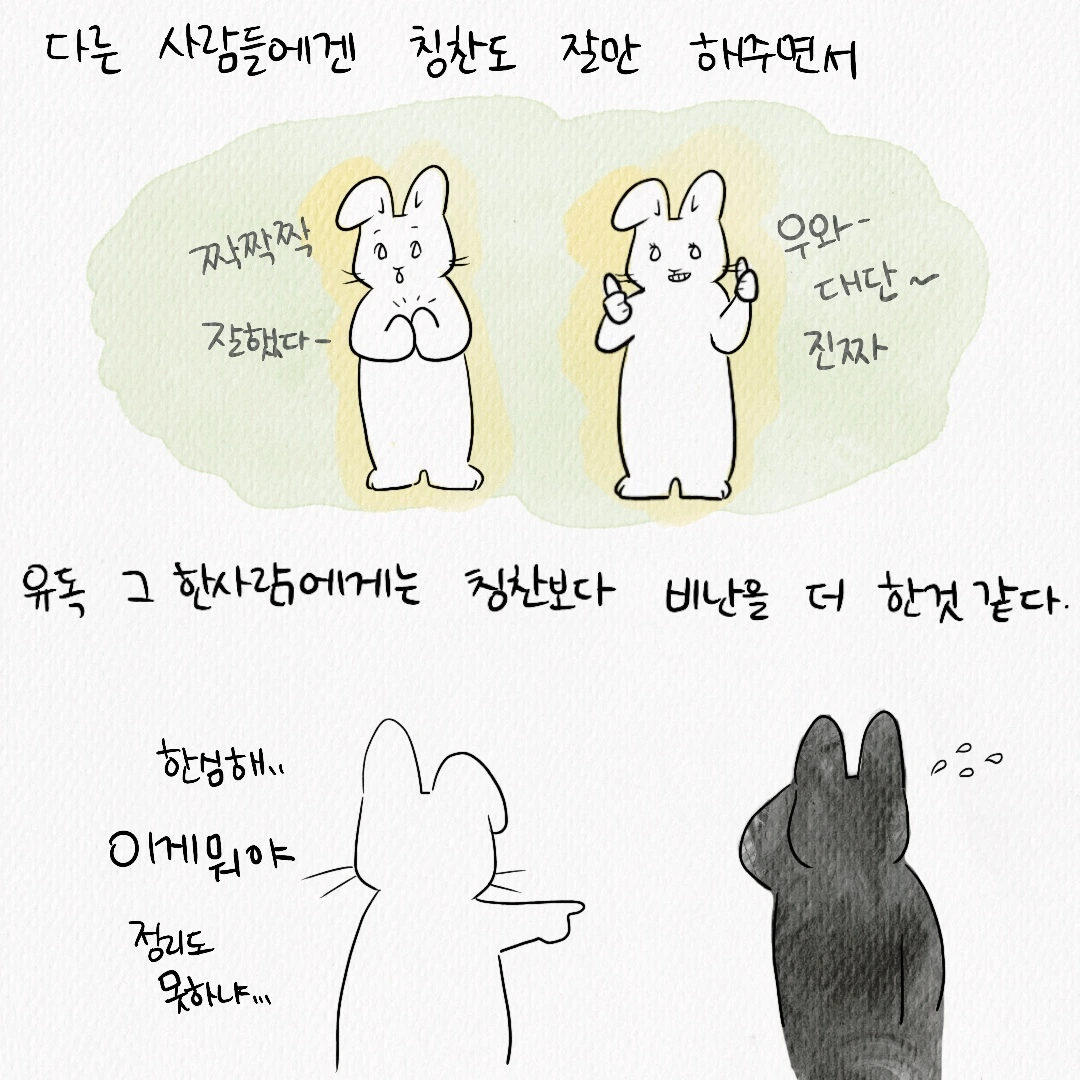 다른 사람들에겐 칭찬도 잘만 해주면서
짝짝짝
잘했다-
우와-
대단~
진짜
유독 그 한사람에게는 칭찬보다 비난을 더 한것 같다.
한심해..
이게뭐야
정리도
못하냐...